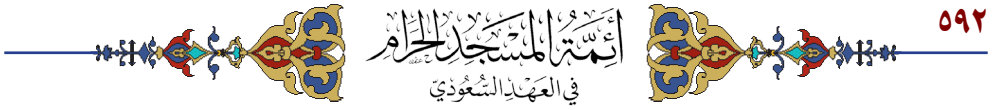 ٥٩٢
أَئِمَّةُ المَسْجِدِ الحَرَامِ
فِي العَهْدِ السُّعُودِيِّ